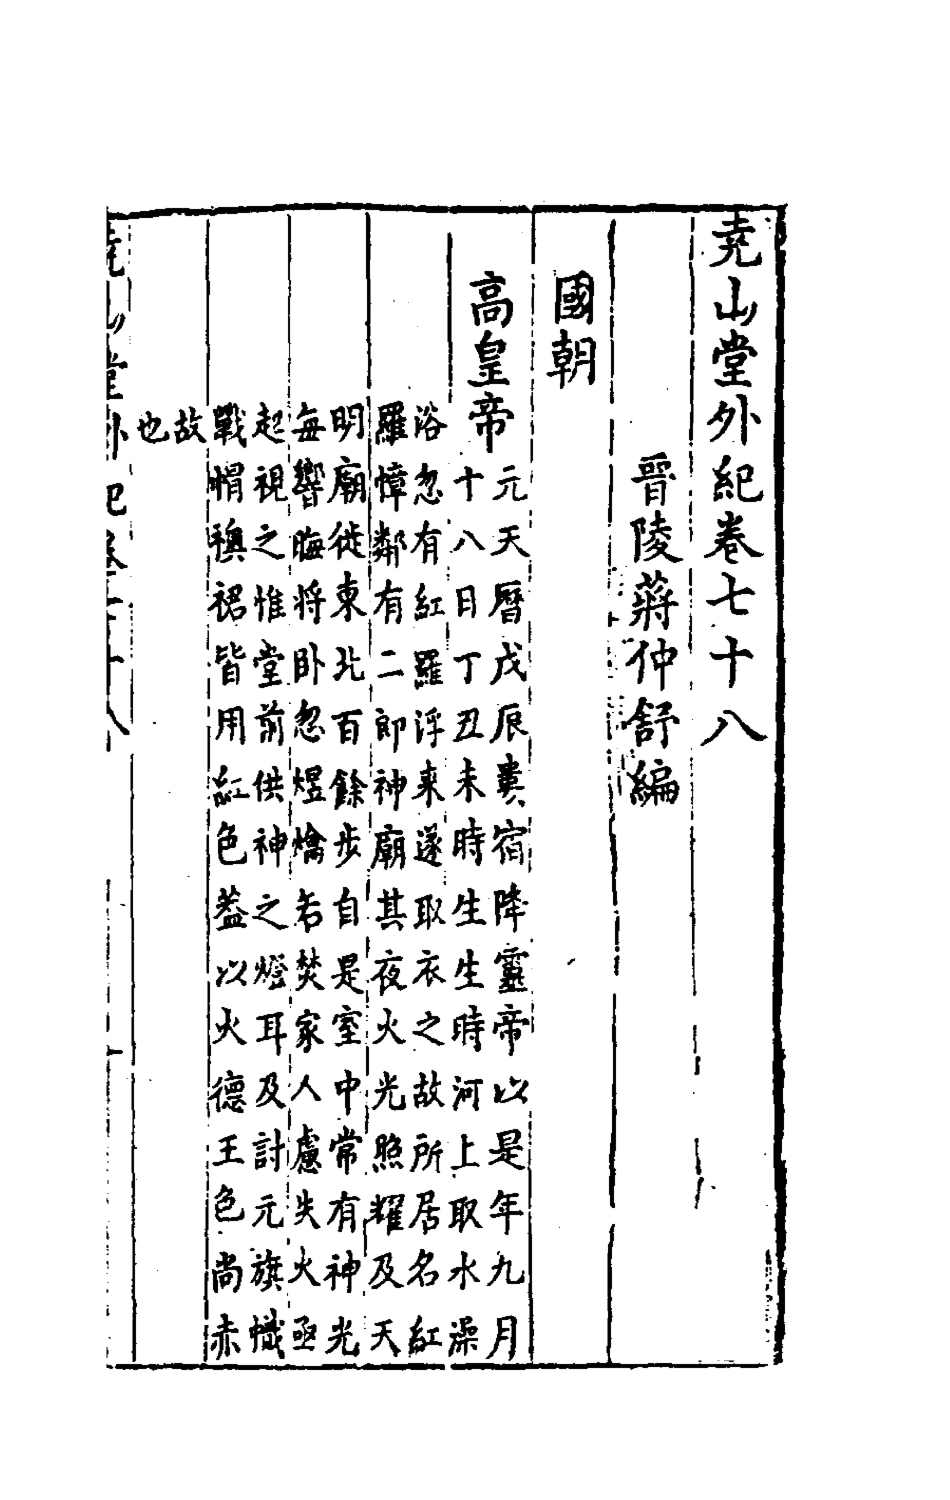 尭山堂外紀卷七十八
晉陵蔣仲舒編
國朝
高皇帝
元天曆戊辰婁宿降靈帝以是年九月
十八日丁丑未時生生時河上取水澡
浴忽有紅羅浮來遂取衣之故所居名紅
羅幛鄰有二郎神廟其夜火光照耀及天
明廟徙東北百餘步自是室中常有神光
每響晦將卧忽煜爚若焚家人慮失火亟
起視之惟堂前供神之燈耳及討元旗幟
戰帽襖裙皆用紅色蓋以火德王色尚赤
故
也
尭山堂外紀卷七十八
一